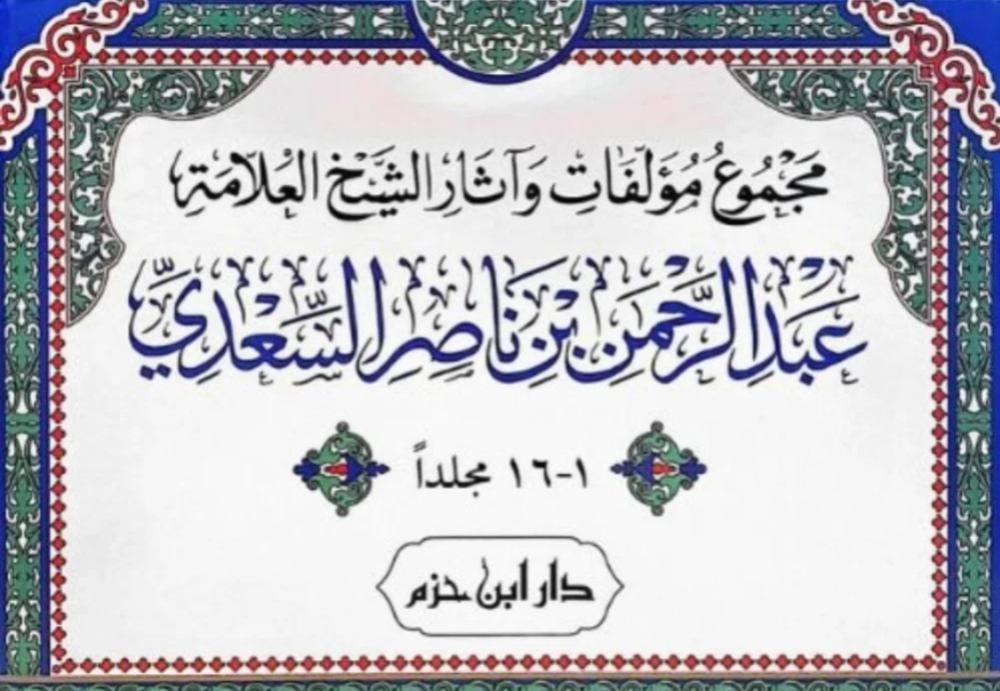 مَجْمُوعُ مُؤَلَّفَاتِ وَآثَارِ الشَّيْخِ العَلَّامَةِ
عَبْدِ الرَّحْمَنِ بْنِ نَاصِرِ السَّعْدِيِّ
١-١٦ مجلداً
دار ابن حزم